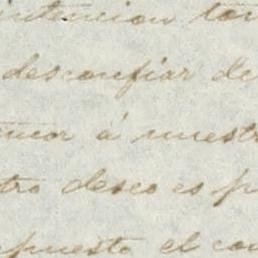 intencion tan
desconfiar de
amor á nuestr
tro deseo es p
puesto el con